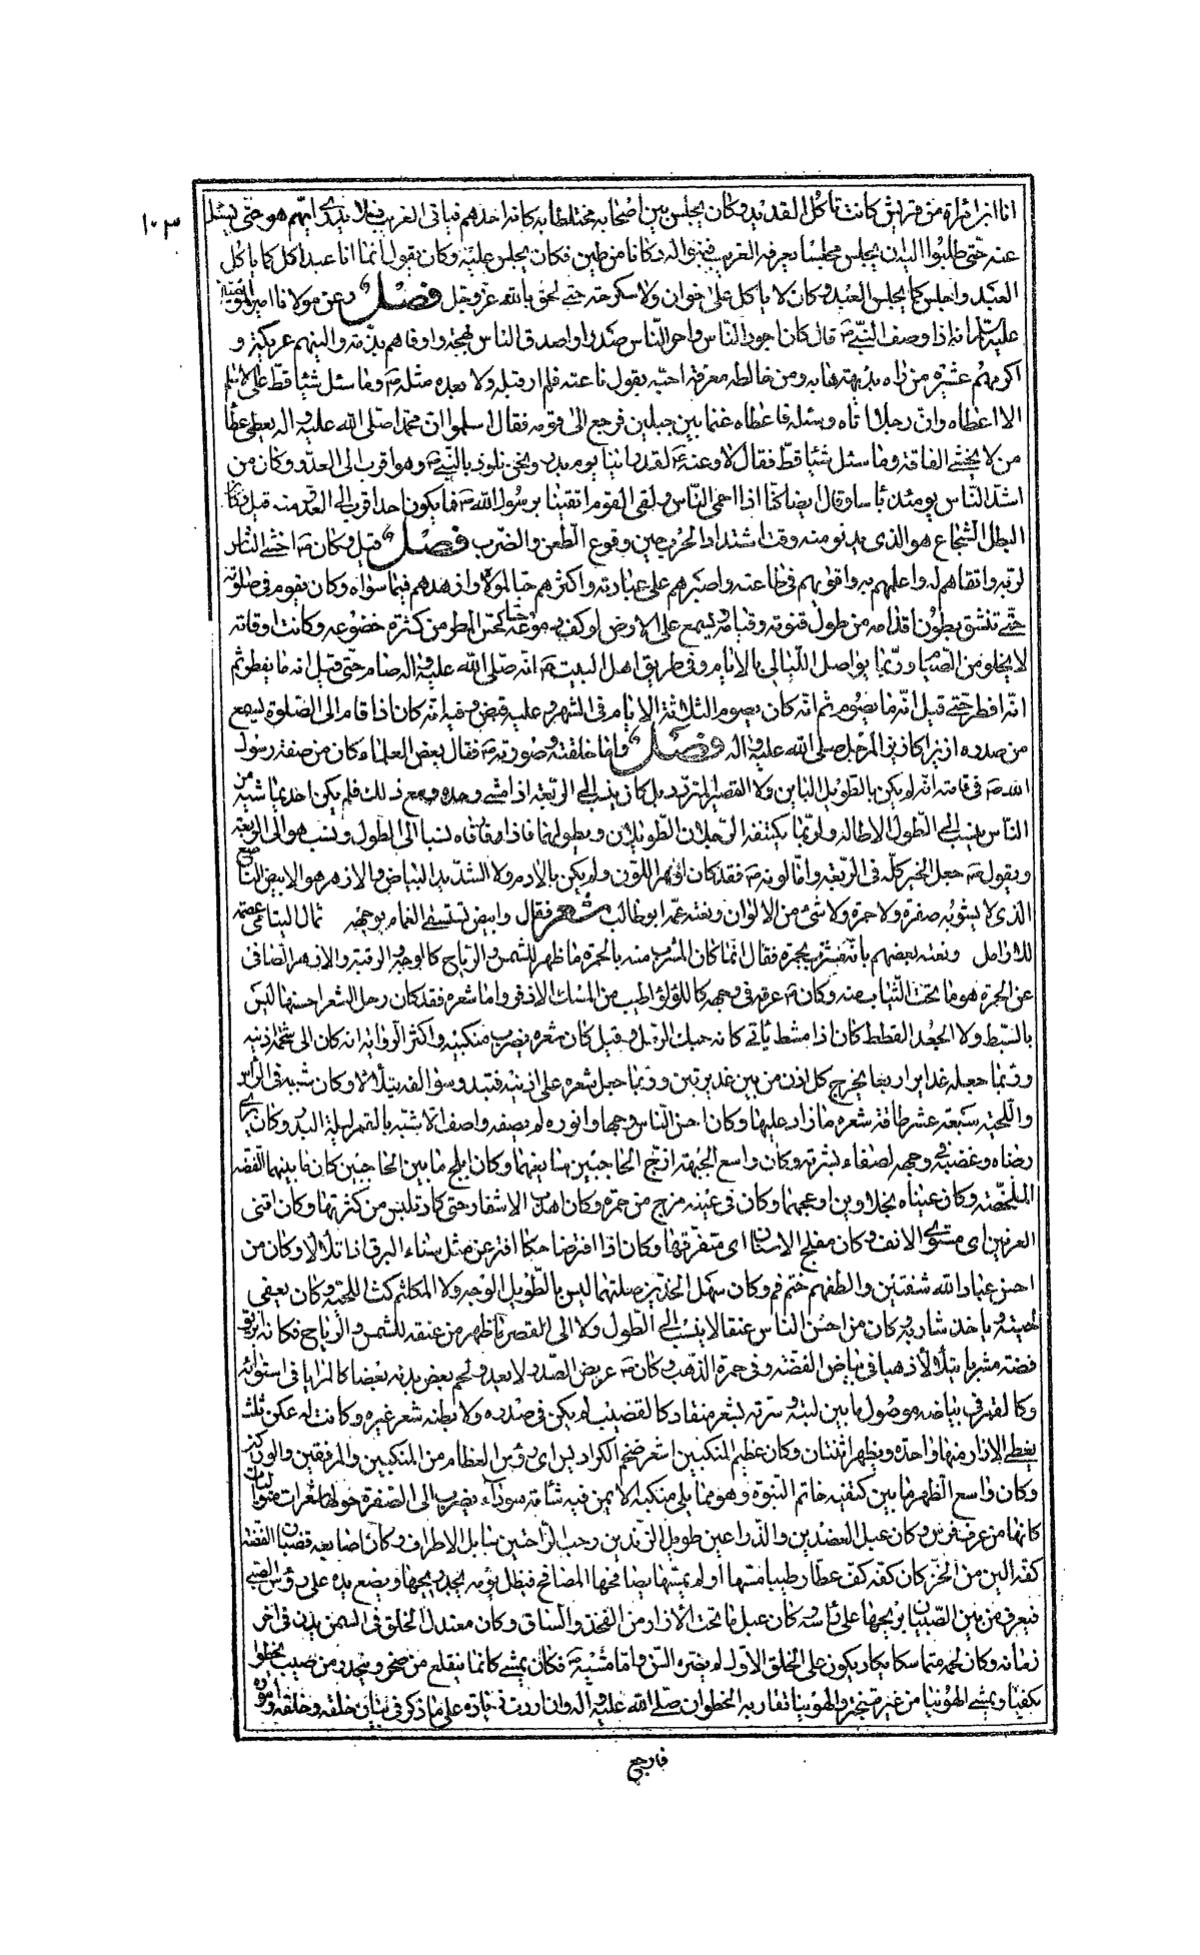 ١٠٣
انا ابن امرأة من قريش كانت تأكل القديد وكان يجلس بين اصحابه مختلطا به كانه احدهم فياتى الغريب فلا يدرى ايهم هو حتى يسئل
عنه حتى طلبوا اليه ان يجلس مجلسا يعرفه الغريب فبنوا له دكانا من طين فكان يجلس عليه وكان يقول انما انا عبد اكل كما ياكل
العبد واجلس كما يجلس العبد وكان لا ياكل على خوان ولا سكرجة حتى لحق بالله عز وجل فصل وعن مولانا امير المؤمنين
عليه السلام انه اذا وصف النبى ص قال كان اجود الناس واجرء الناس صدرا واصدق الناس لهجة واوفاهم بذمة والينهم عريكة و
اكرمهم عشرة من راه بديهة هابه ومن خالطه معرفة احبه يقول ناعته فلم ار قبله ولا بعده مثله ص وما سئل شيئا قط على الاسلام
الا اعطاه وان رجلا اتاه وسئله فاعطاه غنما بين جبلين فرجع الى قومه فقال اسلموا ان محمدا صلى الله عليه واله يعطى عطاء
من لا يخشى الفاقة وما سئل شيئا قط فقال لا وعنه ع لقد راتينا يوم بدر ونحن نلوذ بالنبى ص وهو اقرب الى العدو وكان من
اشد الناس يومئذ باسا وقال ايضا كنا اذا احمى الناس ولقى القوم اتقينا برسول الله ص فما يكون احد اقرب الى العدو منه قيل وكان
البطل الشجاع هو الذى يدنو منه وقت اشتداد الحرب وحين وقوع الطعن والضرب فصل قيل وكان ص اخشى الناس
لربه واتقاهم له واعلمهم به واقواهم فى طاعته واصبرهم على عبادته واكثرهم حبا لمولاه وازهدهم فيما سواه وكان يقوم فى صلوته
حتى تنشق بطون اقدامه من طول قنوته وقيامه ويسمع على الارض لوكف دموعه كحس المطر من كثرة خضوعه وكانت اوقاته
لا يخلو من الصيام وربما يواصل الليالى بالايام وفى طريق اهل البيت ع انه صلى الله عليه واله صام حتى قيل انه ما يفطر ثم
انه افطر حتى قيل انه ما يصوم ثم انه كان يصوم الثلاثة الايام فى الشهر وعليه قبض وفيه انه كان اذا قام الى الصلوة يسمع
من صدره ازيز كازيز المرجل صلى الله عليه واله فصل واما خلقته وصورته ص فقال بعض العلماء كان من صفة رسول
الله ص فى قامته انه لم يكن بالطويل الباين ولا القصير المتردد بل كان ينسب الى الربعة اذا مشى وحده ومع ذلك فلم يكن احد يماشيه من
الناس ينسب الى الطول الا طاله ولربما يكتنفه الرجلان الطويلان ويطولهما فاذا فارقاه نسبا الى الطول ونسب هو الى الربعة
ويقول ص جعل الخير كله فى الربعة واما لونه ص فقد كان ازهر اللون ولم يكن بالادم ولا الشديد البياض والازهر هو الابيض الناصع
الذى لا يشوبه صفرة ولا حمرة ولا شئ من الالوان ونعته عمه ابوطالب شعر فقال وابيض يستسقى الغمام بوجهه ثمال اليتامى عصمة
للارامل ونعته بعضهم بانه مشرب بحمرة فقال انما كان المشرب منه بالحمرة ما ظهر للشمس والرياح كالوجه والرقبة والازهر الصافى
عن الحمرة هو ما تحت الثياب منه وكان ص عرقه فى وجهه كاللؤلؤ اطيب من المسك الاذفر واما شعره فقد كان رجل الشعر احسنها ليس
بالسبط ولا الجعد القطط كان اذا مشط ياتى كانه حبك الرمل وقيل كان شعره يضرب منكبيه واكثر الرواية انه كان الى شحمة اذنيه
وربما جعله غداير اربعا يخرج كل اذن من بين غديرتين وربما جعل شعره على اذنيه فتبدو سوالفه يتلألأ وكان شيبه فى الراس
واللحية سبعة عشر طاقة شعرة ما زاد عليها وكان احسن الناس وجها وانوره لم يصفه واصف الا شبهه بالقمر ليلة البدر وكان يرى
رضاه وغضبه فى وجهه لصفاء بشرته وكان واسع الجبهة ازج الحاجبين سابغهما وكان ابلج ما بين الحاجبين كان ما بينهما الفضة
المخلصة وكان عيناه نجلاوين ادعجهما وكان فى عينه مزج من حمرة وكان اهدب الاشفار حتى كاد تلبس من كثرتها وكان اقنى
العرنين اى مستوى الانف وكان مفلج الاسنان اى متفرقها وكان اذا افتر ضاحكا افتر عن مثل سناء البرق اذا تلألأ وكان من
احسن عباد الله شفتين والطفهم ختم فم وكان سهل الخدين صلتهما ليس بالطويل الوجه ولا المكلثم كث اللحية وكان يعفى
لحيته وياخذ شاربه وكان من احسن الناس عنقا لا ينسب الى الطول ولا الى القصر ما ظهر من عنقه للشمس والرياح فكانه ابريق
فضة مشرب يتلألأ ذهبا فى بياض الفضة وفى حمرة الذهب وكان ص عريض الصدر لا يعدو لحم بعض بدنه بعضا كالمرايا فى استوائه
وكالقمر فى بياضه موصول ما بين لبته وسرته بشعر منقاد كالقضيب لم يكن فى صدره ولا بطنه شعر غيره وكانت له عكن ثلث
يغطى الازار منها واحدة ويظهر اثنتان وكان عظيم المنكبين اشعر ضخم الكراديس اى رؤس العظام من المنكبين والمرفقين والوركين
وكان واسع الظهر ما بين كتفيه خاتم النبوة وهو مما يلى منكبه الايمن فيه شامة سوداء يضرب الى الصفرة حولها شعرات متواليات
كانها من عرف فرس وكان عبل العضدين والذراعين طويل الزندين رحب الراحتين سابل الاطراف وكان اصابعه قضبان الفضة
كفه الين من الخز كان كفه كف عطار طيبا مسها او لم يمسها يصافحها المصافح فيظل يومه يجد ريحها ويضع يده على رؤس الصبى
فيعرف من بين الصبيان بريحها على راسه وكان عبل ما تحت الازار من الفخذ والساق وكان معتدل الخلق فى السمن بدن فى اخر
زمانه وكان لحمه متماسكا يكاد يكون على الخلق الاول لم يضره السن واما مشيه ص فكان يمشى كانما ينقلع من صخر وينحدر من صبب يخطو
تكفيا ويمشى الهوينا من غير تبختر والهوينا تقارب الخطو ان صلى الله عليه واله وان اردت زيادة على ما ذكر فى بيان خلقه وخلقه وموته
فارجع